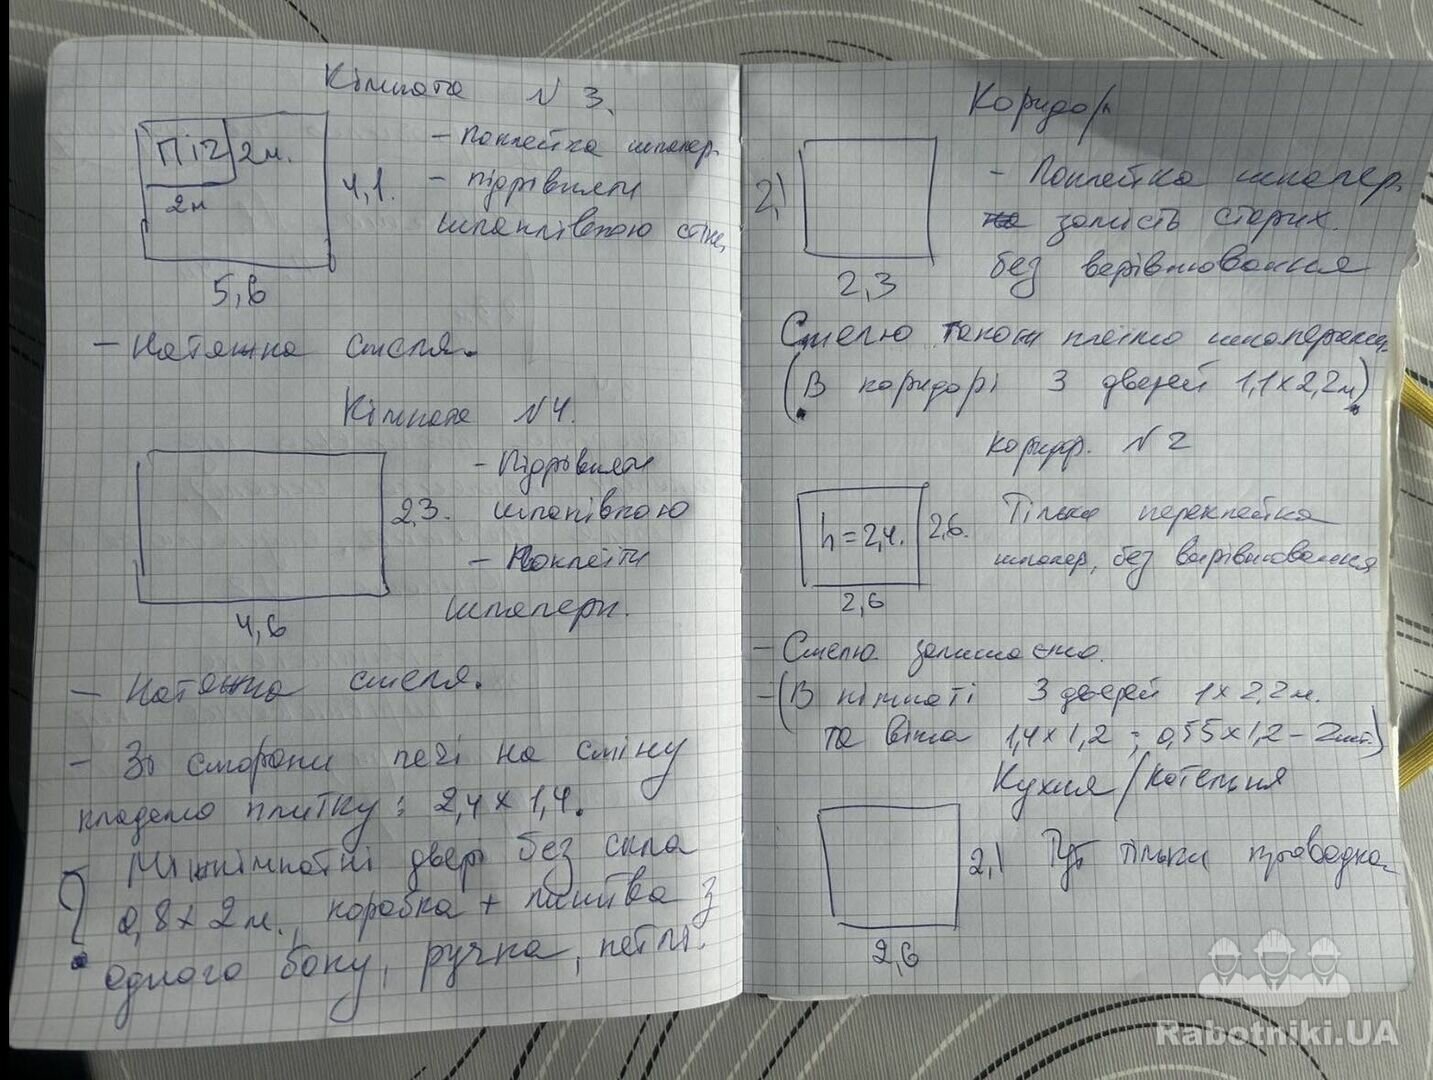 Кімната N 3.
Піч 2м.
2м
4,1.
5,6
- Поклейка шпалер.
- підрівняти
шпаклівкою стіни,
- Натяжна стеля.
Кімната N4.
2,3.
4,6
- Підрівняти
шпаклівкою
- Поклеїти
шпалери.
- Натяжна стеля.
- Зі сторони печі на стіну
кладемо плитку: 2,4 x 1,4.
Міжкімнатні двері без скла
0,8 x 2 м., коробка + лиштва з
одного боку, ручка, петлі.
Коридор
2,1
2,3
- Поклейка шпалер.
замість старих.
без вирівнювання
Стелю також клеїмо шпалерами.
(В коридорі 3 дверей 1,1 x 2,2м)
коридор. N 2
h = 2,4.
2,6.
2,6
Тільки переклейка
шпалер, без вирівнювання
- Стелю залишаємо.
- (В кімнаті 3 дверей 1 x 2,2 м.
та вікна 1,4 x 1,2 ; 0,55 x 1,2 - 2шт.)
Кухня / Котельня
2,1
2,6
Тут тільки проводка
Rabotniki.UA